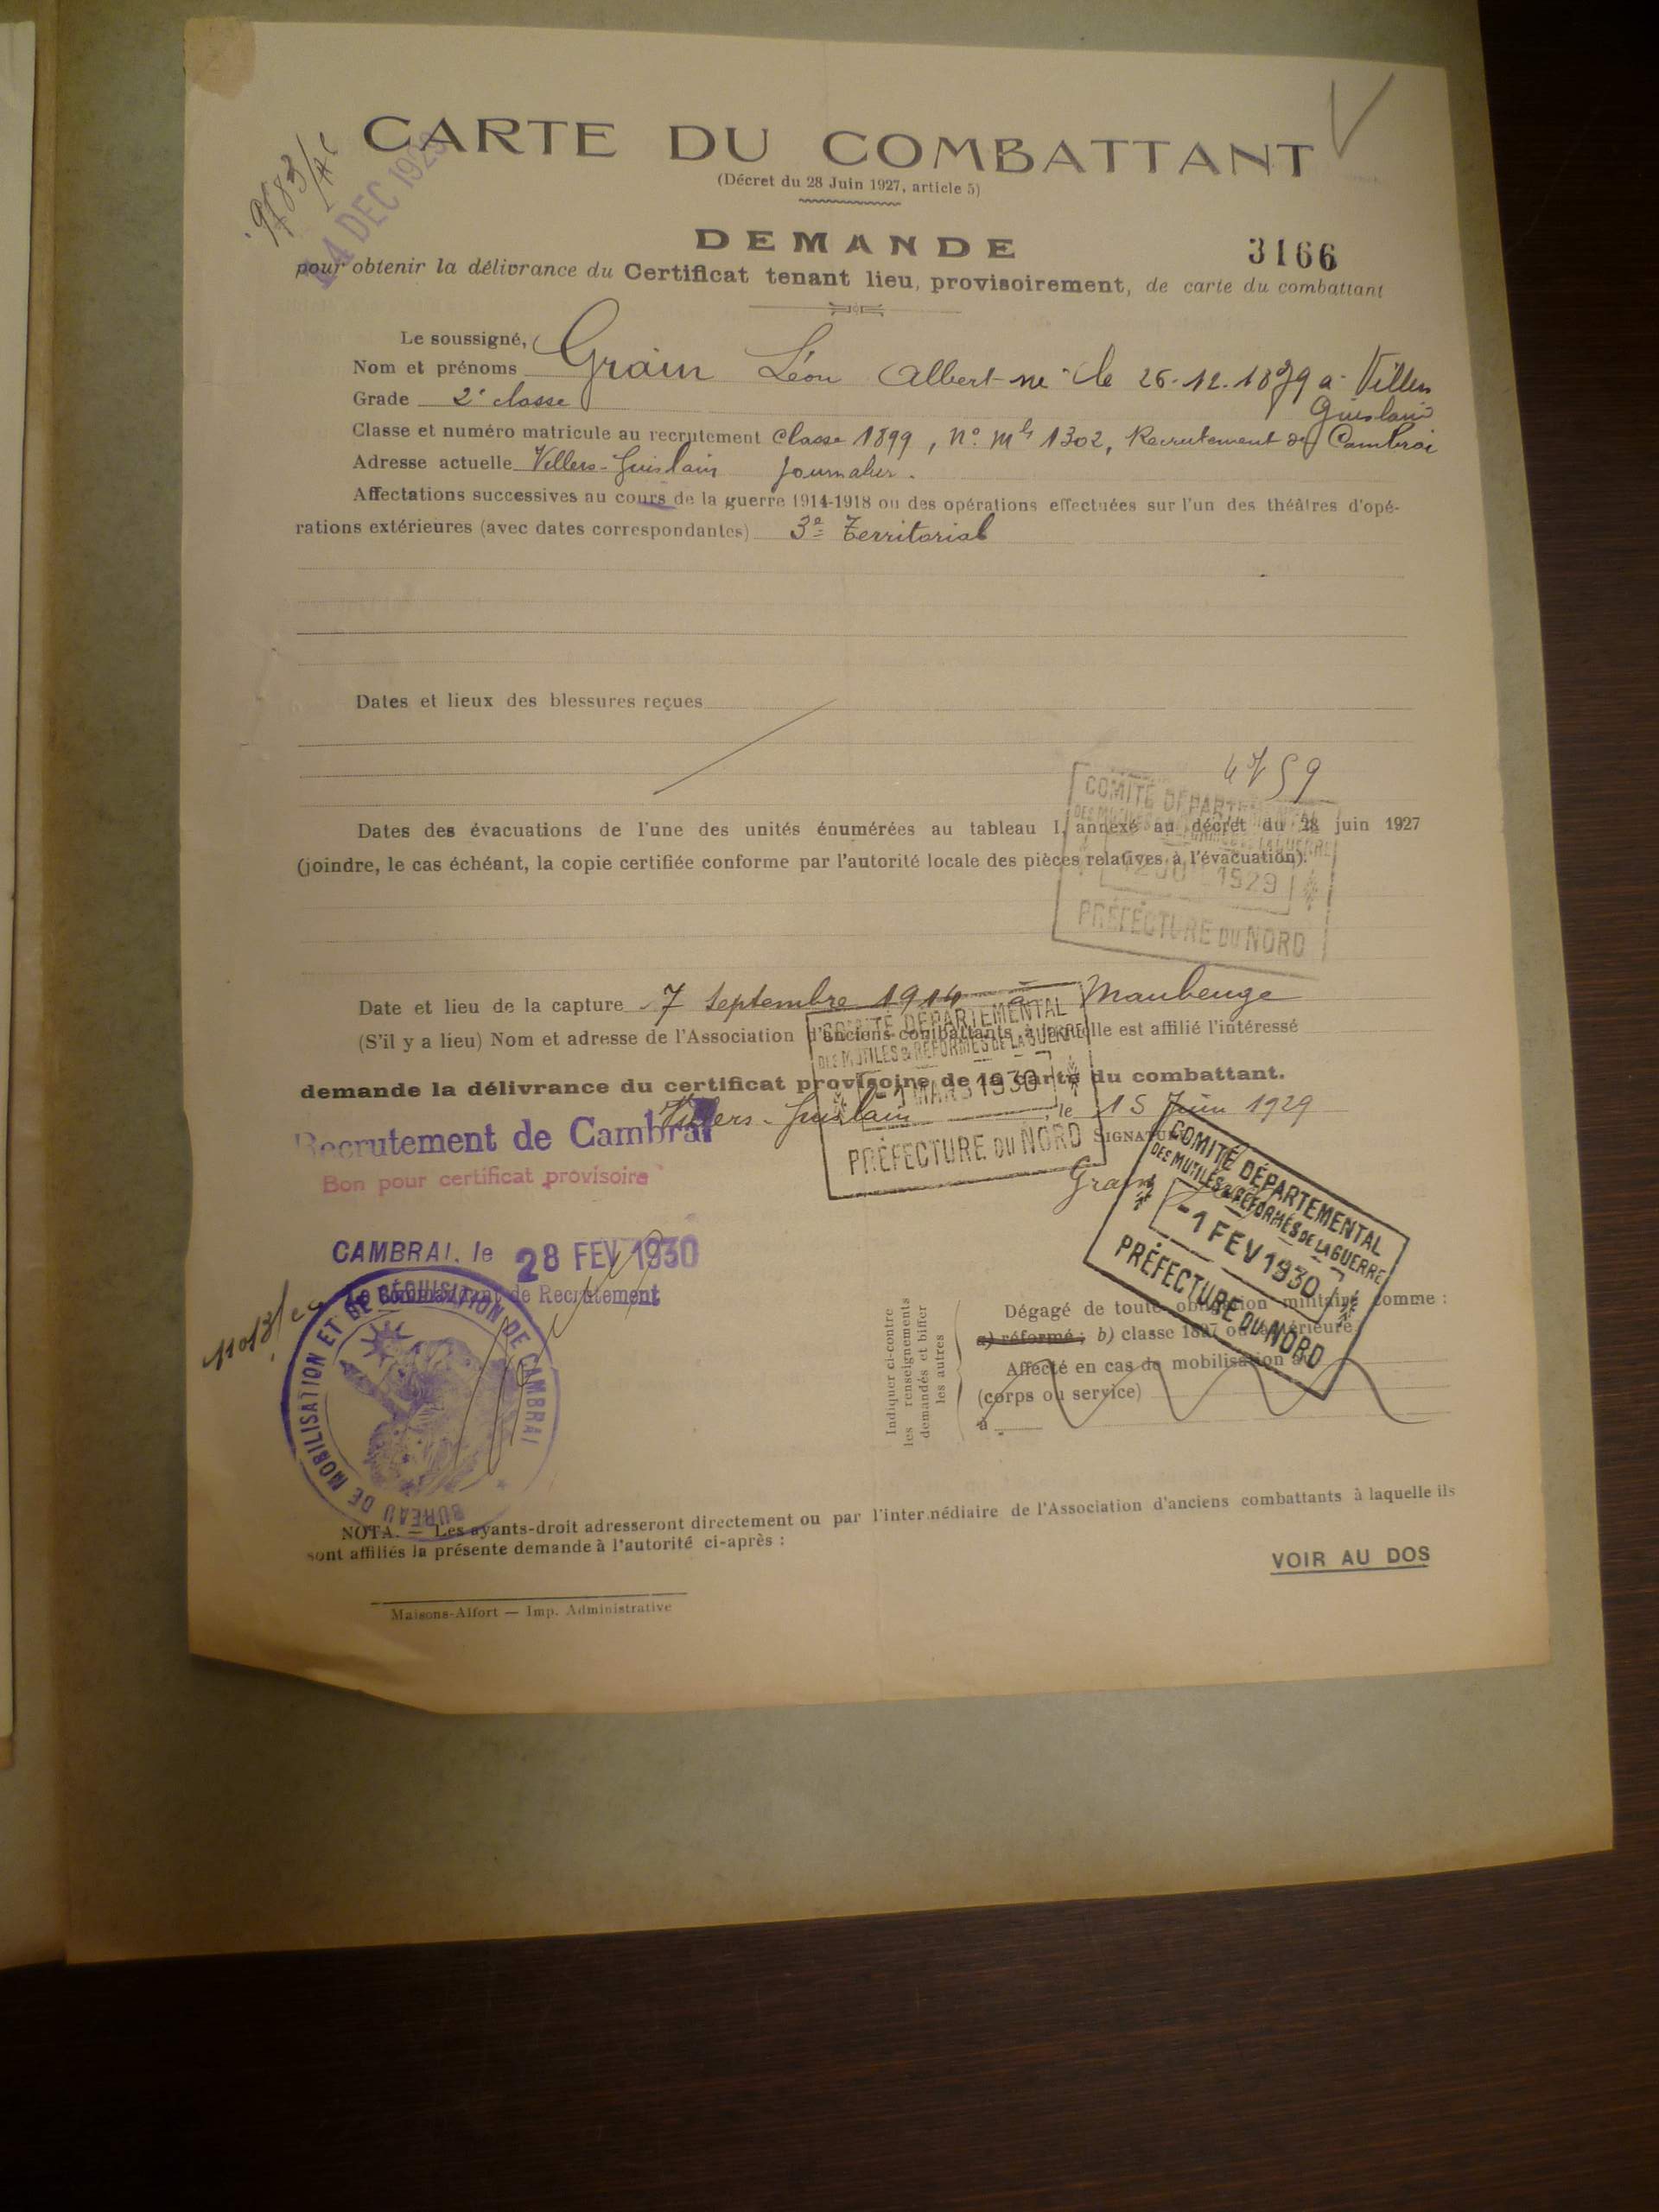 CARTE DU COMBATTANT
(Décret du 28 Juin 1927, article 5)
DEC 192
DEMANDE
3166
pour obtenir la délivrance du Certificat tenant lieu, provisoirement, de carte du combattant
Le soussigné,
Nom et prénoms Grain Léon Albert né le 26.12.1879 à Villers
Guislain
Grade 2e classe
Classe et numéro matricule au recrutement Classe 1899, No Mle 1302, Recrutement de Cambrai
Adresse actuelle Villers-Guislain Journalier.
Affectations successives au cours de la guerre 1914-1918 ou des opérations effectuées sur l'un des théâtres d'opé-
rations extérieures (avec dates correspondantes) 3e Territorial
Dates et lieux des blessures reçues
Dates des évacuations de l'une des unités énumérées au tableau I, annexé au décret du 28 juin 1927
(joindre, le cas échéant, la copie certifiée conforme par l'autorité locale des pièces relatives à l'évacuation).
COMITÉ DÉPARTEMENTAL
1929
PRÉFECTURE DU NORD
Date et lieu de la capture 7 Septembre 1914 à Maubeuge
(S'il y a lieu) Nom et adresse de l'Association d'anciens combattants à laquelle est affilié l'intéressé
demande la délivrance du certificat provisoire de la carte du combattant.
COMITÉ DÉPARTEMENTAL
DES MUTILÉS & RÉFORMÉS DE LA GUERRE
-1 MARS 1930
PRÉFECTURE DU NORD
Villers-Guislain, le 15 Juin 1929
SIGNATURE
Grain
Recrutement de Cambrai
Bon pour certificat provisoire
CAMBRAI, le 28 FEV 1930
Le Commandant de Recrutement
BUREAU DE MOBILISATION ET DE RÉQUISITION DE CAMBRAI
COMITÉ DÉPARTEMENTAL
DES MUTILÉS & RÉFORMÉS DE LA GUERRE
-1 FEV 1930
PRÉFECTURE DU NORD
Indiquer ci-contre
les renseignements
demandés et biffer
les autres
Dégagé de toute obligation militaire comme :
a) réformé ; b) classe 1897 ou antérieure.
Affecté en cas de mobilisation à
(corps ou service)
à
NOTA. — Les ayants-droit adresseront directement ou par l'intermédiaire de l'Association d'anciens combattants à laquelle ils
sont affiliés la présente demande à l'autorité ci-après :
VOIR AU DOS
Maisons-Alfort — Imp. Administrative